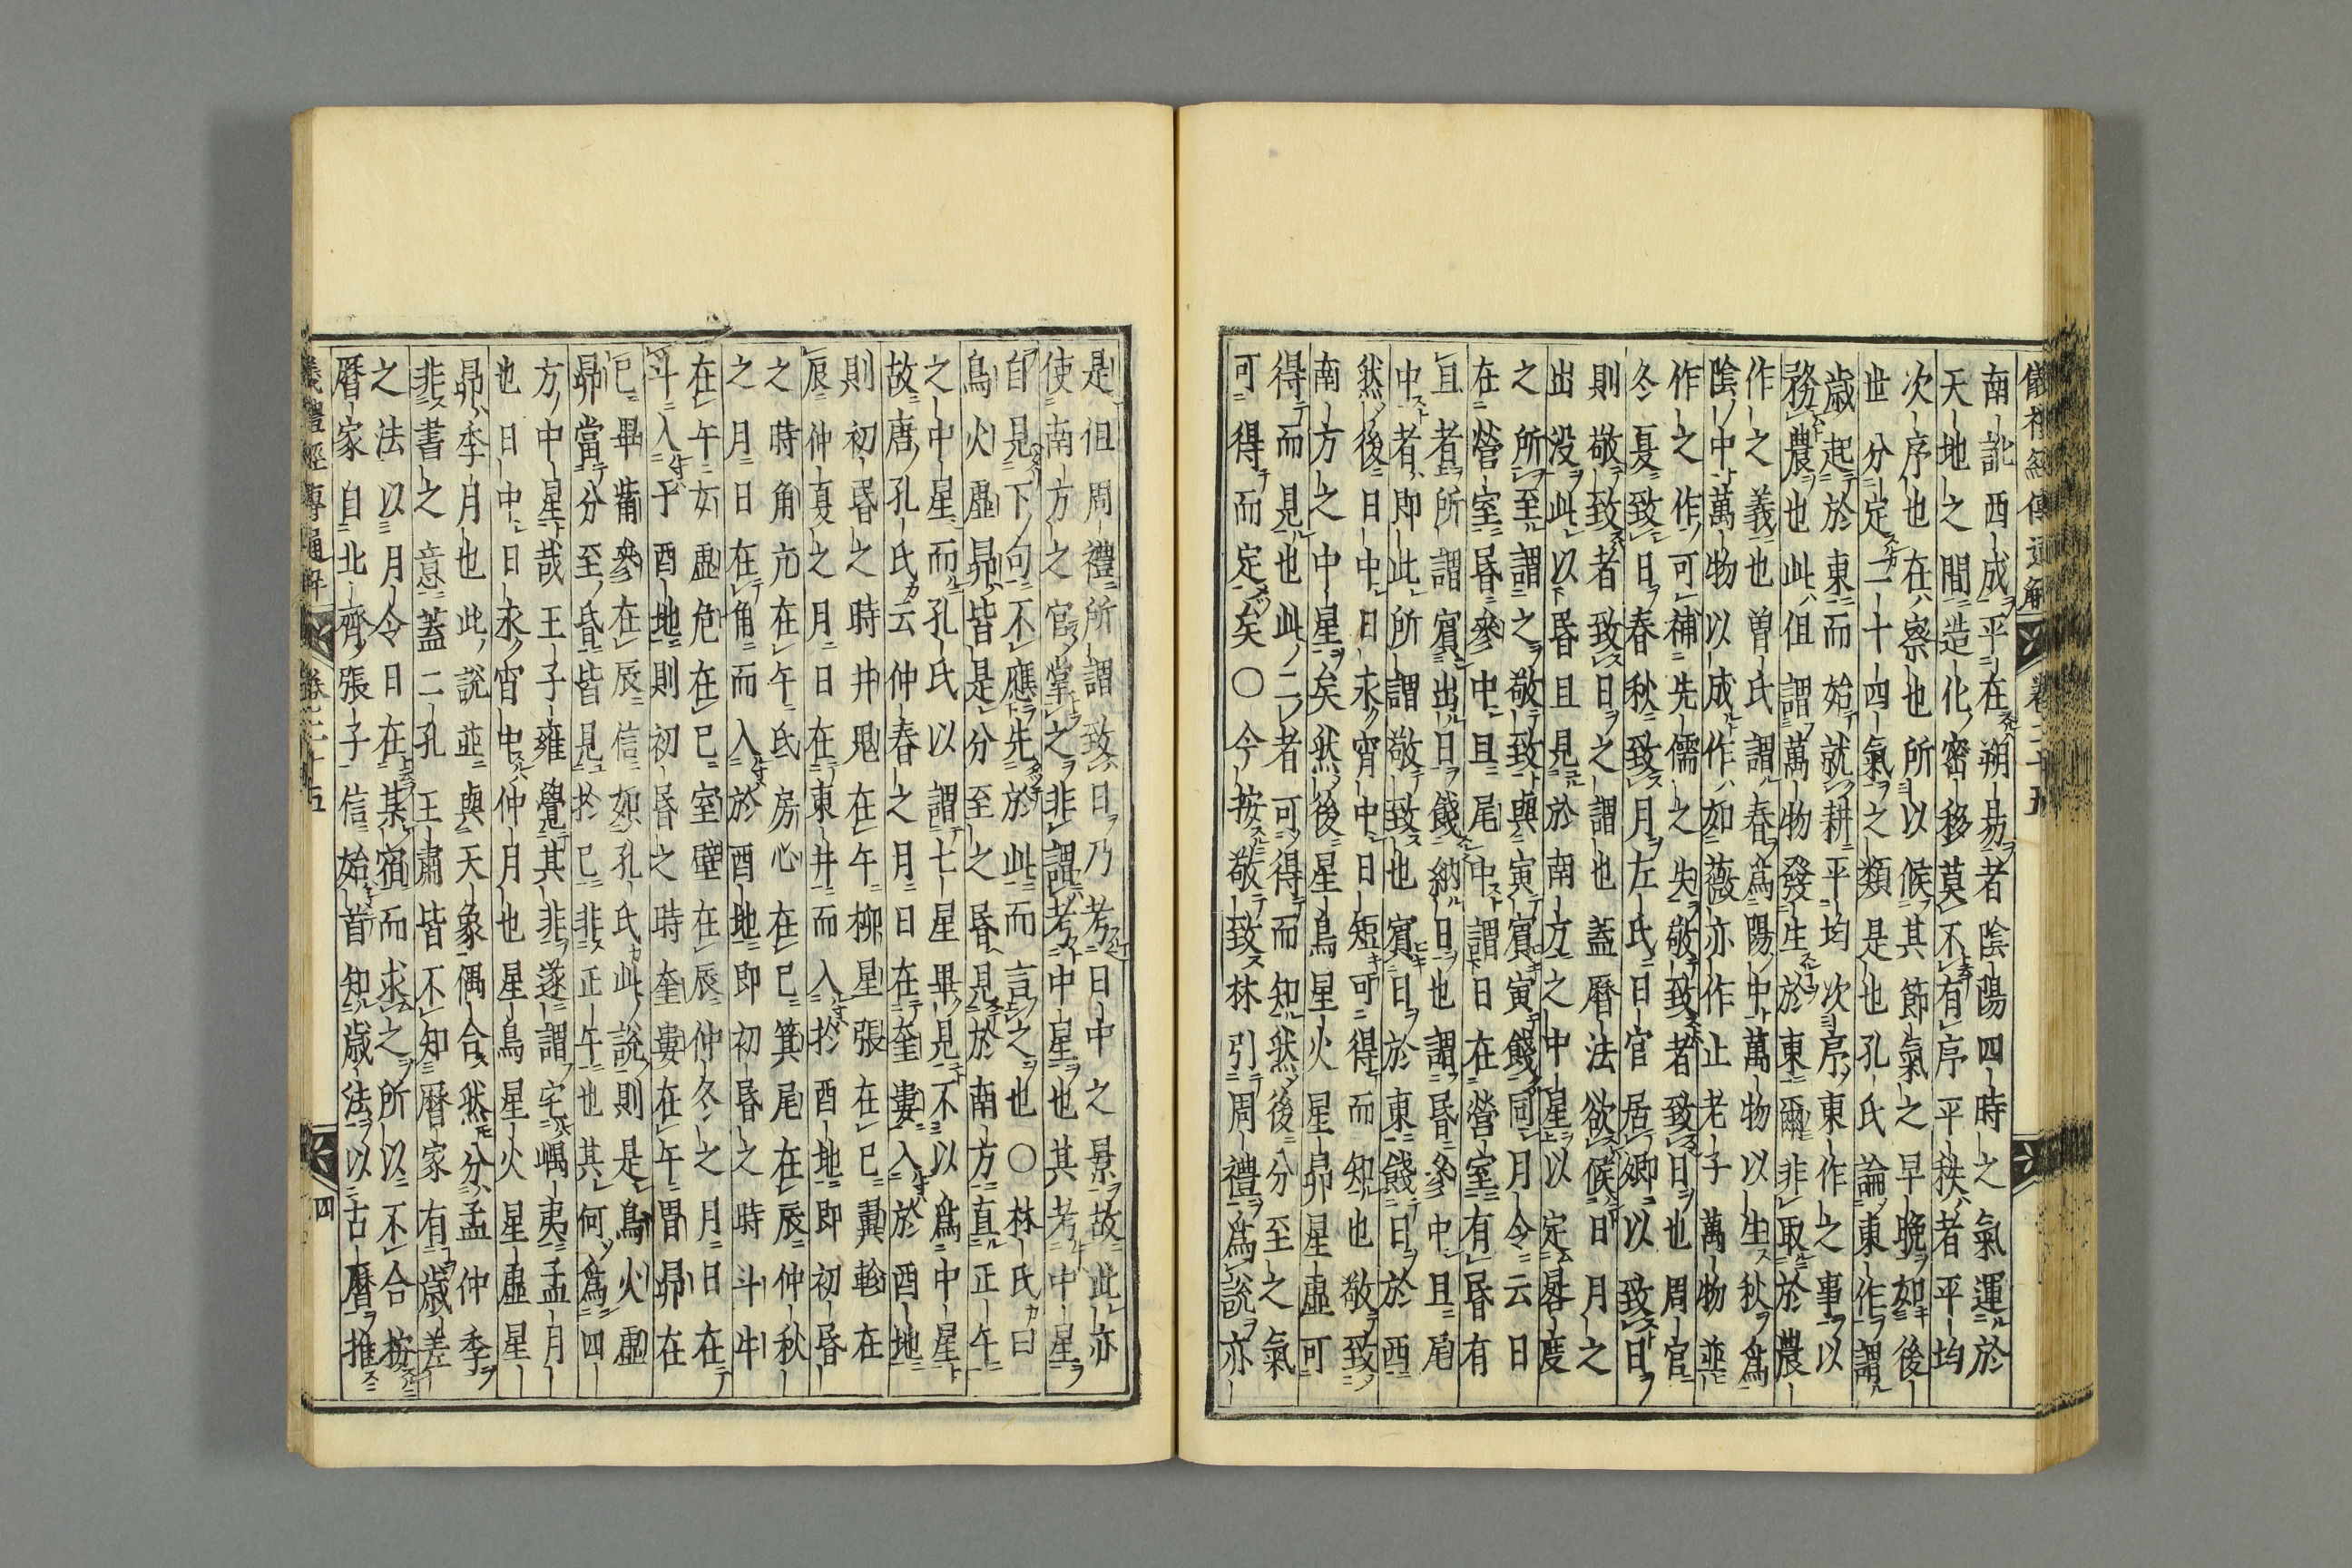 儀禮經傳通解 卷二十五
南訛西成平在朔易者陰陽四時之氣運於
天地之間造化密移莫不有序平秩者平均
次序也在察也所以候其節氣之早晚如後
世分定二十四氣之類是也孔氏論東作謂
歲起於東而始就耕平均次序東作之事以
務農也此但謂萬物發生於東爾非取於農
作之義也曽氏謂春爲陽中萬物以生秋爲
陰中萬物以成作如薇亦作止老子萬物並
作之作可補先儒之失敬致者致日也周官
冬夏致日春秋致月左氏日官居卿以致日
則敬致者致日之謂也蓋曆法欲候日月之
出没此以昏旦見於南方之中星以定晷度
之所至謂之敬致與寅賓寅餞同月令云日
在營室昏參中旦尾中謂日在營室有昏有
旦者所謂賓出日餞納日也謂昏參中旦尾
中者即此所謂敬致也賓日於東餞日於西
然後日中日永宵中日短可得而知也敬致
南方之中星矣然後星鳥星火星昴星虛可
得而見也此二者可得而知然後分至之氣
可得而定矣○今按敬致林引周禮爲說亦
是但周禮所謂致日乃考日中之景故此亦
使南方之官掌之非謂考中星也其考中星
自見下句不應先於此而言之也○林氏曰
鳥火虛昴皆是分至之昏見於南方直正午
之中星而孔氏以謂七星畢見不以爲中星
故唐孔氏云仲春之月日在奎婁入於酉地
則初昏之時井鬼在午柳星張在巳翼軫在
辰仲夏之月日在東井而入於酉地即初昏
之時角亢在午氐房心在巳箕尾在辰仲秋
之月日在角而入於酉地即初昏之時斗牛
在午女虛危在巳室壁在辰仲冬之月日在
斗入于酉地則初昏之時奎婁在午胃昴在
巳畢觜參在辰信如孔氏此說則是鳥火虛
昴當分至昏皆見於巳非正午也其何爲四
方中星哉王子雍覺其非遂謂宅嵎夷孟月
也日中日永宵中仲月也星鳥星火星虛星
昴季月也此說並與天象偶合然分孟仲季
非書之意蓋二孔王肅皆不知曆家有歲差
之法以月令日在某宿而求之所以不合按
曆家自北齊張子信始首知歲法以古曆推
儀禮經傳通解 卷二十五 四